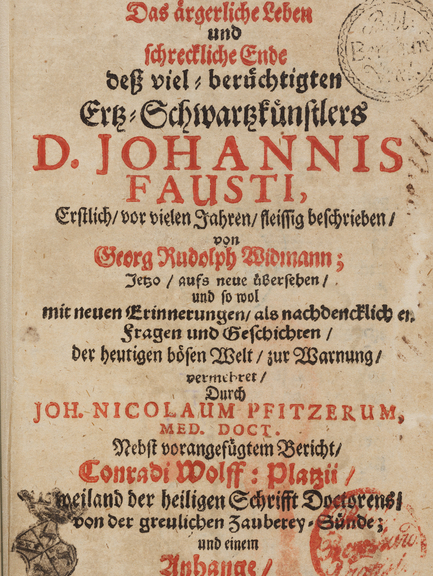 Das ärgerliche Leben
und
schreckliche Ende
deß viel-berüchtigten
Ertz-Schwartzkünstlers
D. JOHANNIS
FAUSTI,
Erstlich/ vor vielen Jahren/ fleissig beschrieben/
von
Georg Rudolph Widmann;
Jetzo/ aufs neue übersehen/
und so wol
mit neuen Erinnerungen/ als nachdencklichen
Fragen und Geschichten/
der heutigen bösen Welt/ zur Warnung/
vermehret/
Durch
JOH. NICOLAUM PFITZERUM,
MED. DOCT.
Nebst vorangefügtem Bericht/
Conradi Wolff: Platzii/
weiland der heiligen Schrifft Doctorens/
von der greulichen Zauberey-Sünde;
und einem
Anhange/